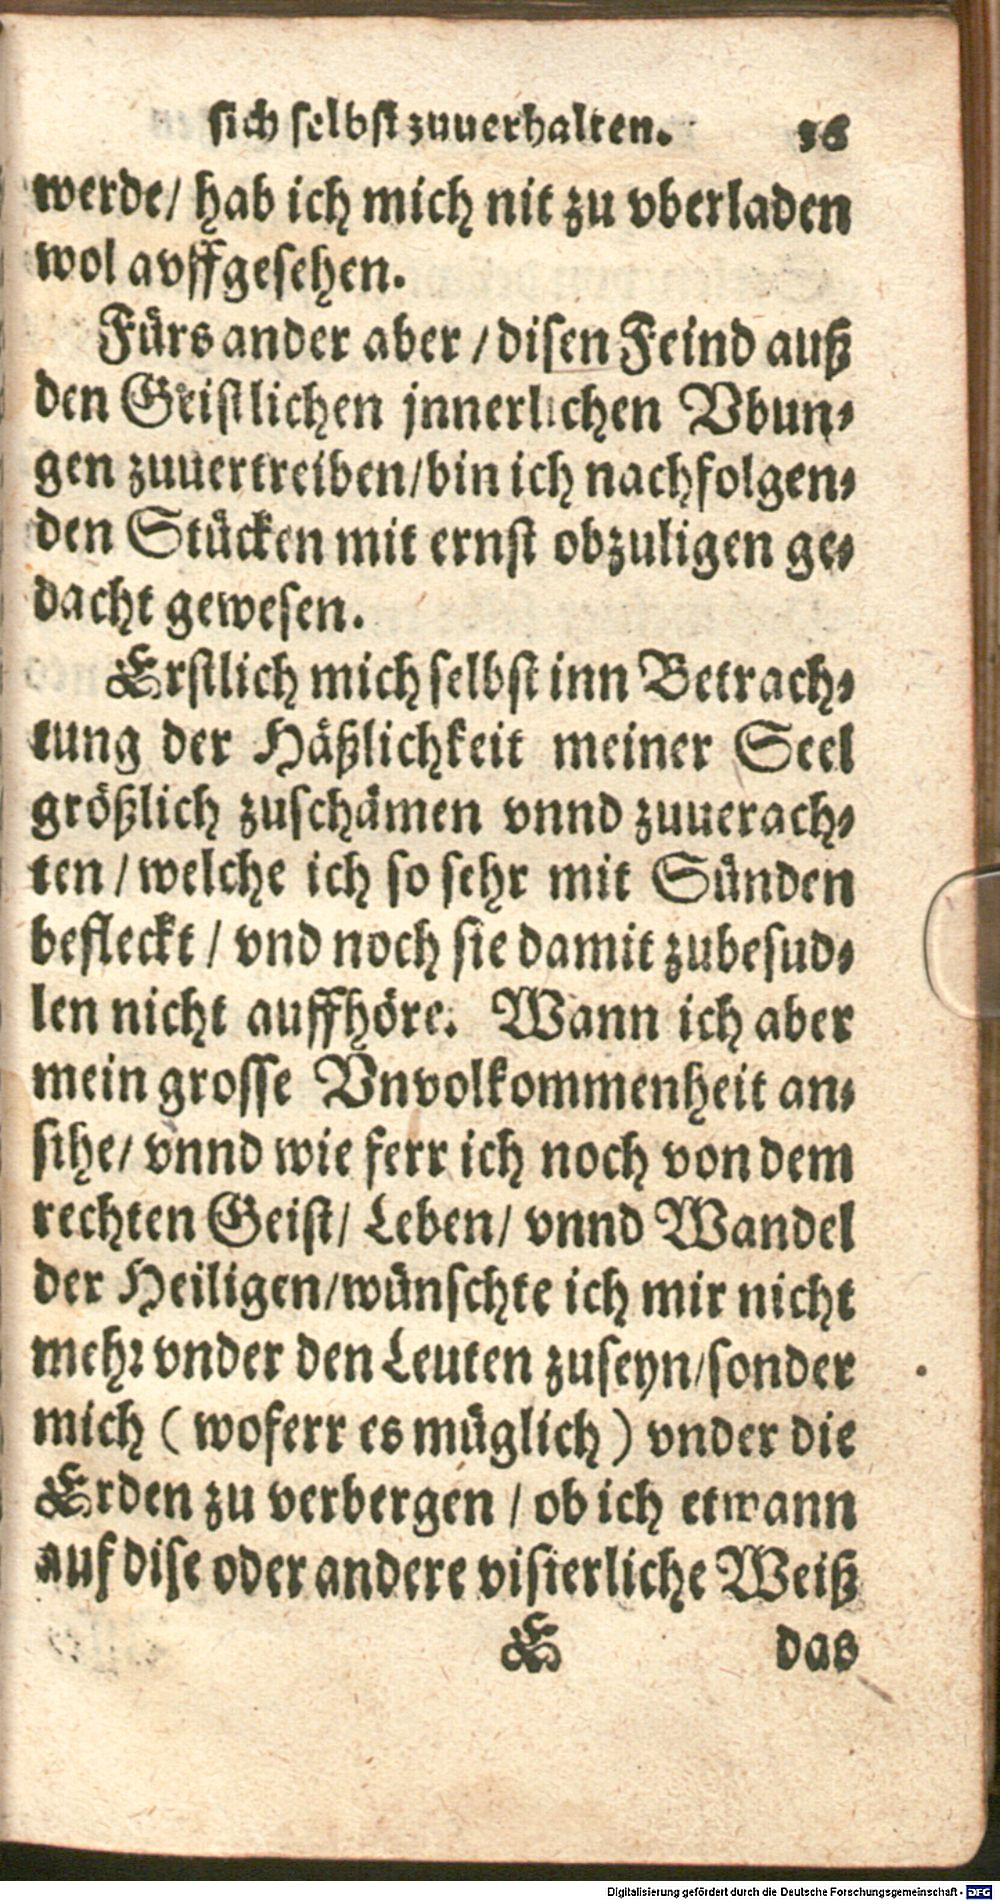 sich selbst zuuerhalten. 36
werde/ hab ich mich nit zu vberladen
wol avffgesehen.
Fürs ander aber / disen Feind auß
den Geistlichen jnnerlichen Vbun-
gen zuuertreiben/bin ich nachfolgen-
den Stücken mit ernst obzuligen ge-
dacht gewesen.
Erstlich mich selbst inn Betrach-
tung der Häßlichkeit meiner Seel
größlich zuschämen vnnd zuuerach-
ten / welche ich so sehr mit Sünden
befleckt / vnd noch sie damit zubesud-
len nicht auffhöre. Wann ich aber
mein grosse Vnvolkommenheit an-
sihe/ vnnd wie ferr ich noch von dem
rechten Geist/ Leben/ vnnd Wandel
der Heiligen/wünschte ich mir nicht
mehr vnder den Leuten zuseyn/sonder
mich ( woferr es müglich ) vnder die
Erden zu verbergen / ob ich etwann
auf dise oder andere visierliche Weiß
E das
Digitalisierung gefördert durch die Deutsche Forschungsgemeinschaft - DFG